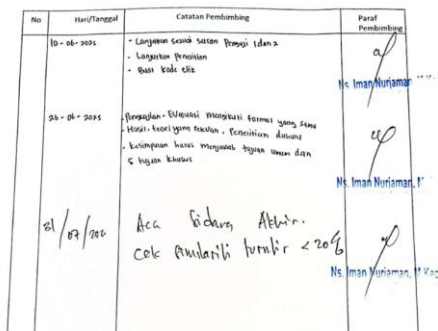 No Hari/Tanggal Catatan Pembimbing Paraf Pembimbing
10-06-2025
- Lanjutkan sesuai saran Penguji 1 dan 2
- Lanjutkan Penelitian
- Buat kode etik
Ns. Iman Nurjaman
26-06-2025
- Pengkajian - Evaluasi mengikuti format yang sama
- Hasil, teori yang relevan, Penelitian dahulu
- Kesimpulan harus menjawab tujuan umum dan
5 tujuan khusus
Ns. Iman Nurjaman, M
31/07/202
Acc Sidang Akhir.
cek similariti turnitir <20%
Ns. Iman Nurjaman, M Kep